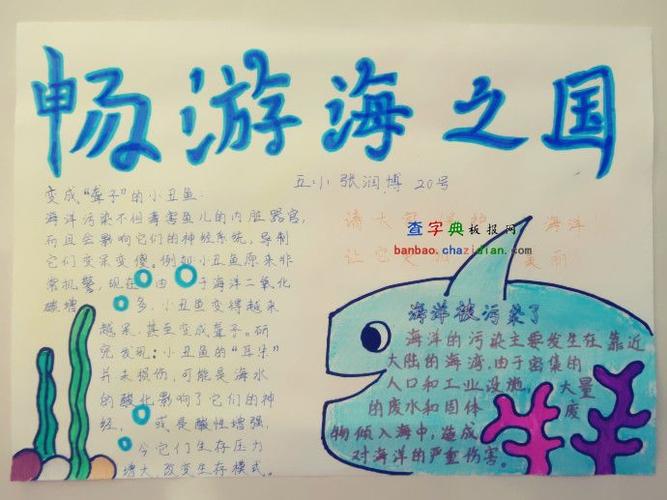 畅游海之国
五小 张润博 20号
变成“聋子”的小丑鱼
海洋污染不但毒害鱼儿的内脏器官,
而且会影响它们的神经系统,导制
它们变呆变傻。例如小丑鱼原来非
常机警,现在由于海洋二氧化
碳增多,小丑鱼变得越来
越呆,甚至变成聋子。研
究发现:小丑鱼的“耳朵”
并未损伤,可能是海水
的酸化影响了它们的神
经,或是酸性增强,
令它们生存压力
增大,改变生存模式。
请大 海洋
让它 美丽
查字典板报网
banbao.chazidian.com
海洋被污染了
海洋的污染主要发生在靠近
大陆的海湾,由于密集的
人口和工业设施,大量
的废水和固体废
物倾入海中,造成
对海洋的严重伤害。